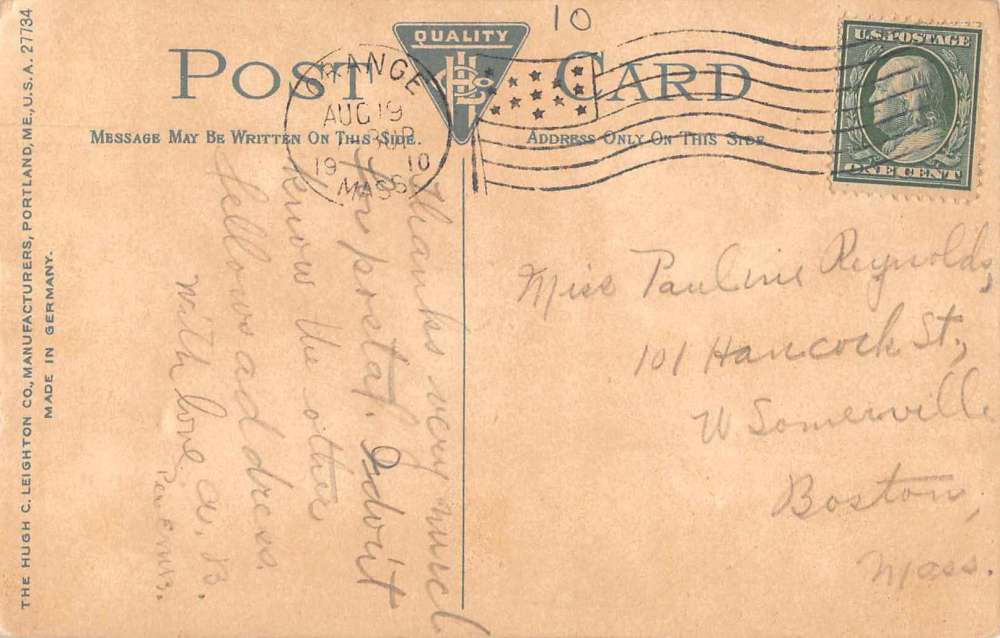 10
POST CARD
QUALITY
MESSAGE MAY BE WRITTEN ON THIS SIDE.
ADDRESS ONLY ON THIS SIDE
ORANGE
AUG 19
1910
MASS
U.S. POSTAGE
ONE CENT
Thanks very much
for postal. I don't
know the other
fellows address
with love, a. B.
Miss Pauline Reynolds,
101 Hancock St.,
W Somerville
Boston,
Mass.
THE HUGH C. LEIGHTON CO., MANUFACTURERS, PORTLAND, ME., U.S.A. 27734
MADE IN GERMANY.